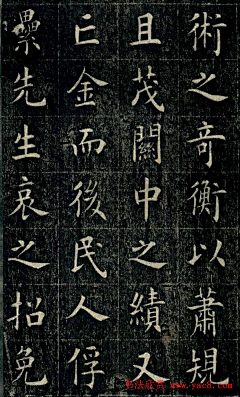 術之奇衡以蕭規
且茂關中之績又
亡金而後民人俘
纍先生哀之招免
www.yac8.com